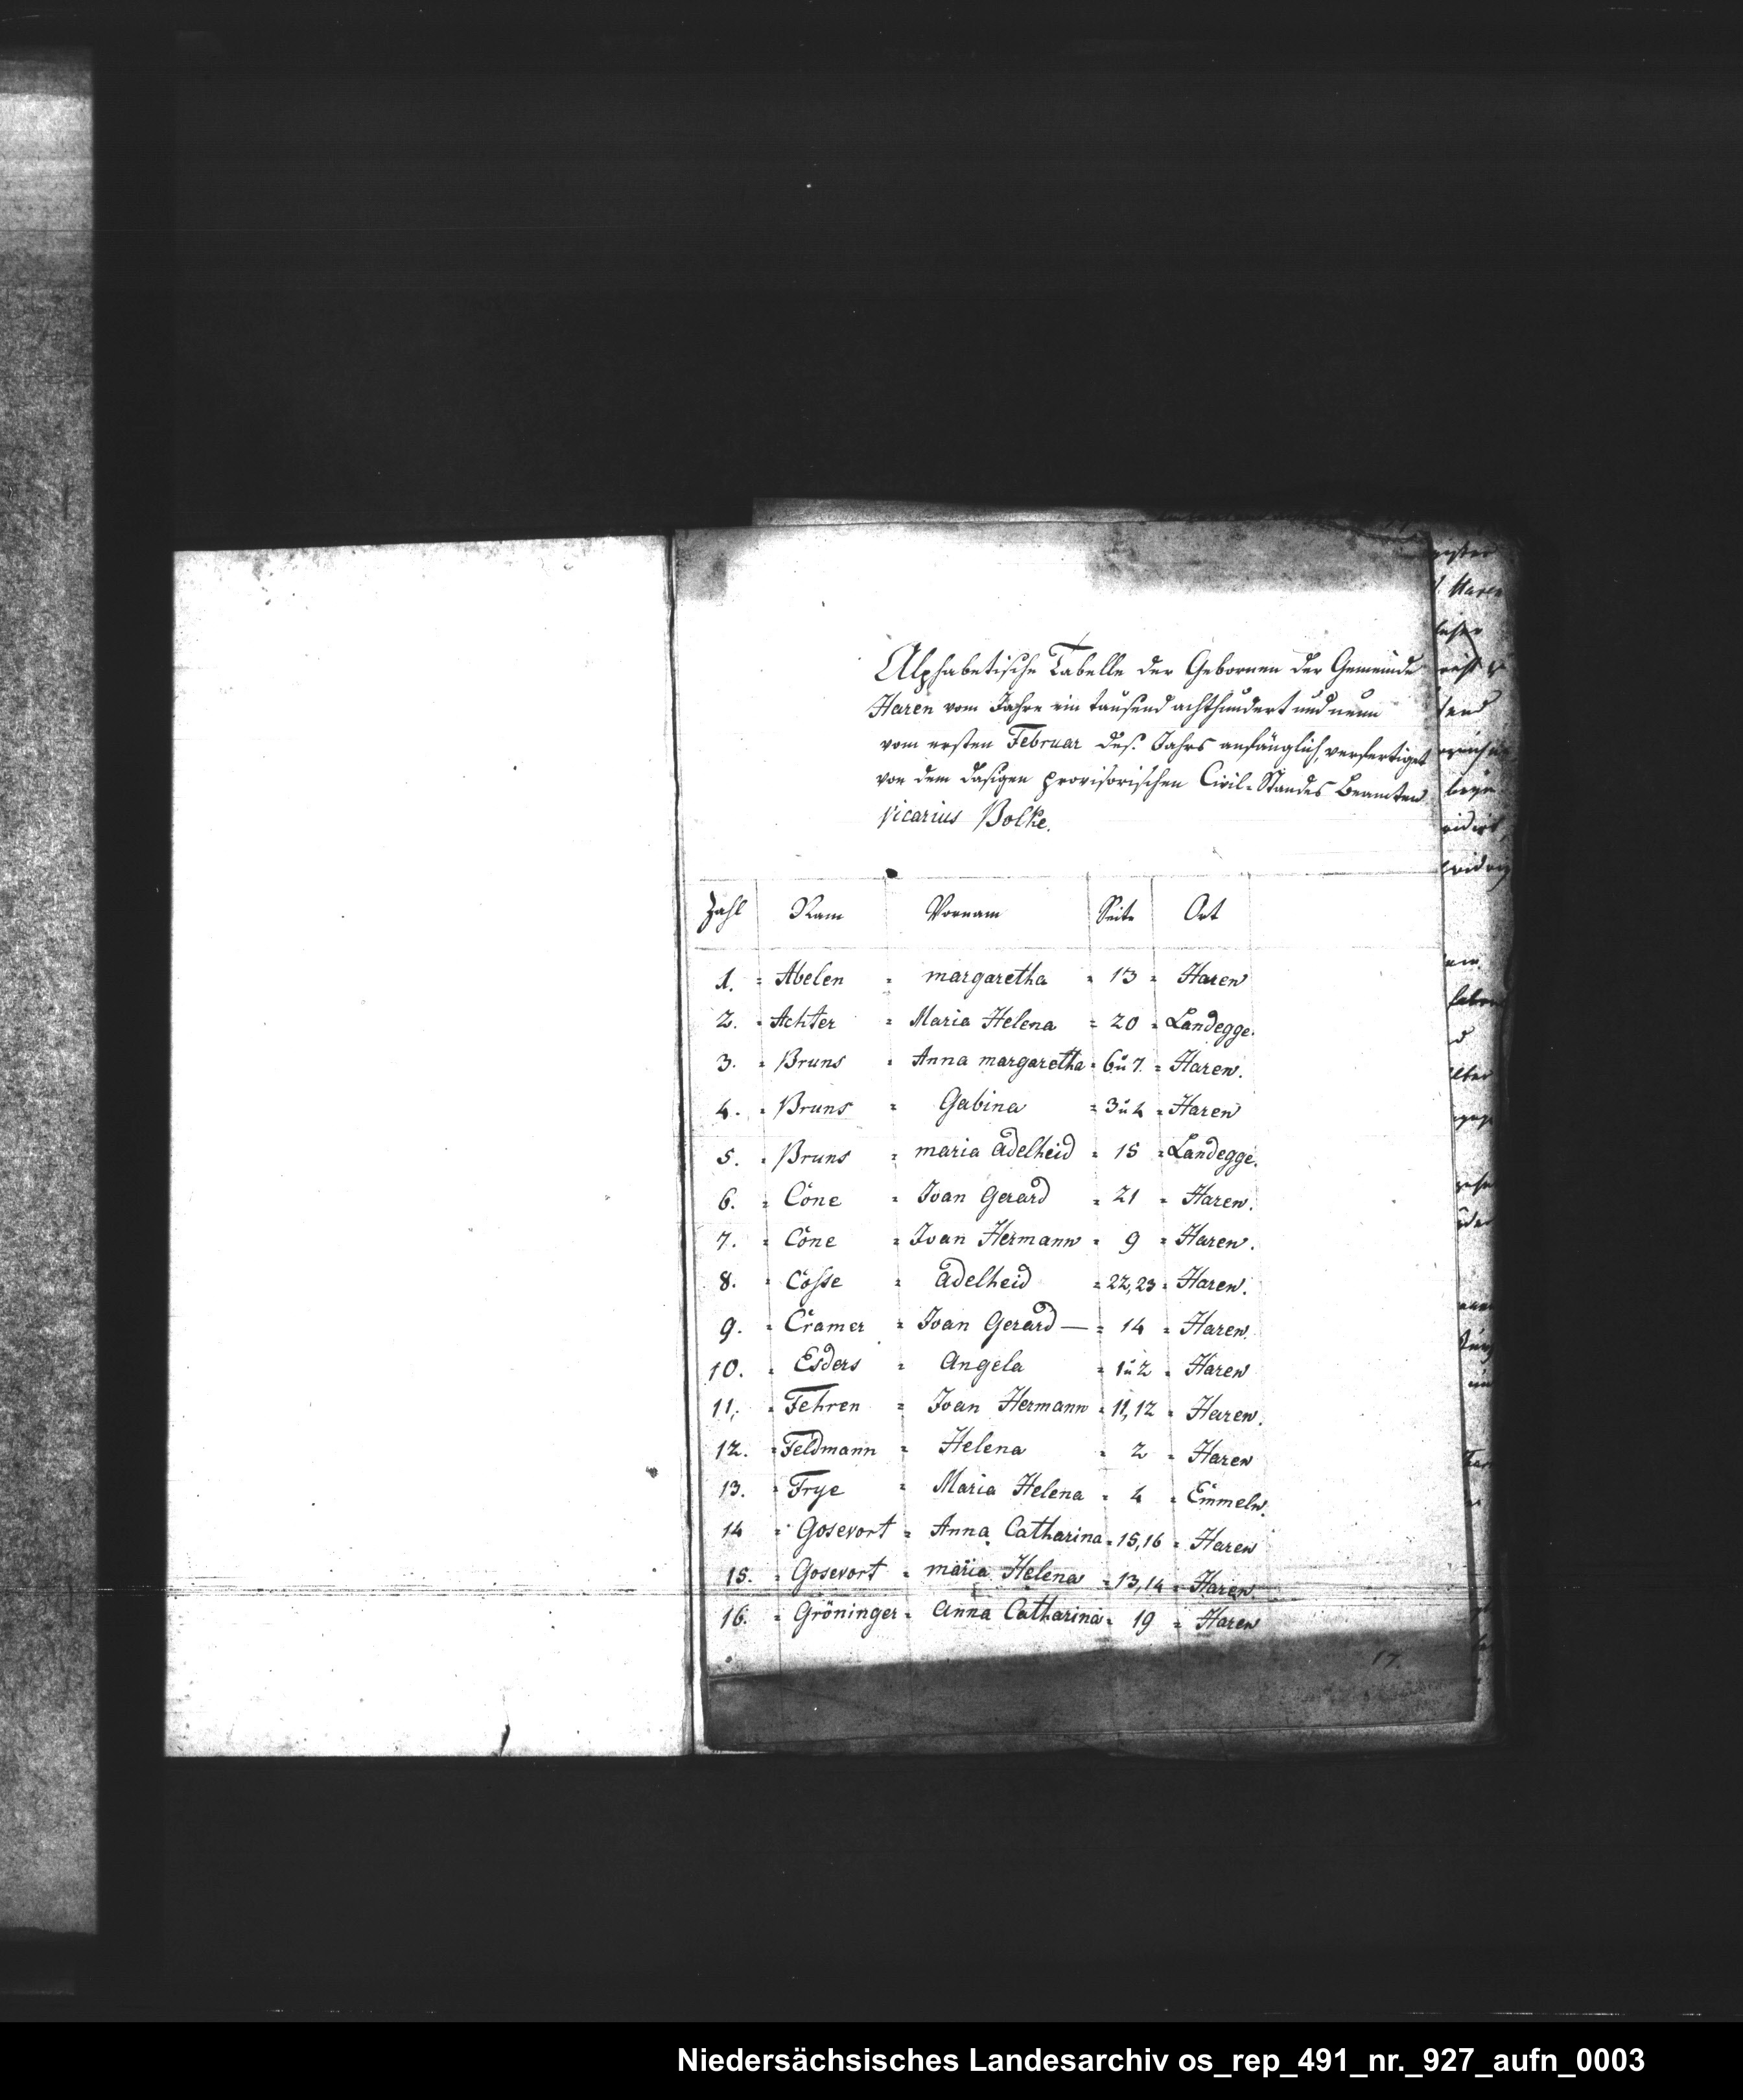 Alphabetische Tabelle der Gebornen der Gemeinde
Haren vom Jahre ein tausend achthundert und neun
vom ersten Februar des. Jahrs anfänglich, verfertiget
von dem dasigen provisorischen Civil-Standes Beamten
vicarius Bolke.
Zahl Nam Vornam Seite Ort
1. = Abelen = margaretha = 13 = Haren
2. = Achter = Maria Helena = 20 = Landegge.
3. = Bruns = Anna margaretha = 6 ü 7. = Haren.
4. = Bruns = Gabina = 3 ü 4 = Haren
5. = Bruns = maria adelheid = 15 = Landegge.
6. = Cöne = Joan Gerard = 21 = Haren.
7. = Cöne = Joan Hermann = 9 = Haren.
8. = Cosse = adelheid = 22, 23 = Haren.
9. = Cramer = Joan Gerard — = 14 = Haren.
10. = Esders = Angela = 1 ü 2 = Haren
11. = Fehren = Joan Hermann = 11, 12 = Haren.
12. = Feldmann = Helena = 2 = Haren
13. = Frye = Maria Helena = 4 = Emmeln.
14 = Gosevort = Anna Catharina = 15, 16 = Haren
15. = Gosevort = maria Helena = 13, 14 = Haren
16. = Gröninger = Anna Catharina = 19 = Haren
17.
Niedersächsisches Landesarchiv os_rep_491_nr._927_aufn_0003